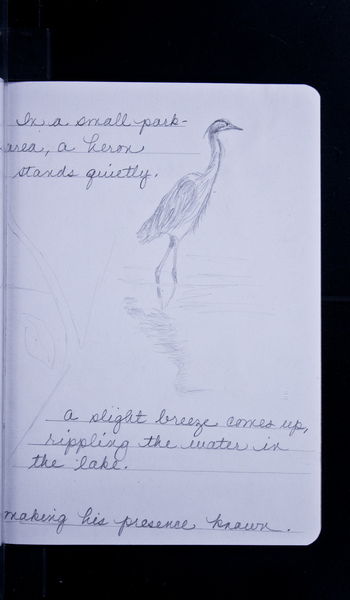 In a small park-
area, a heron
stands quietly.
a slight breeze comes up,
rippling the water in
the lake.
making his presence known.